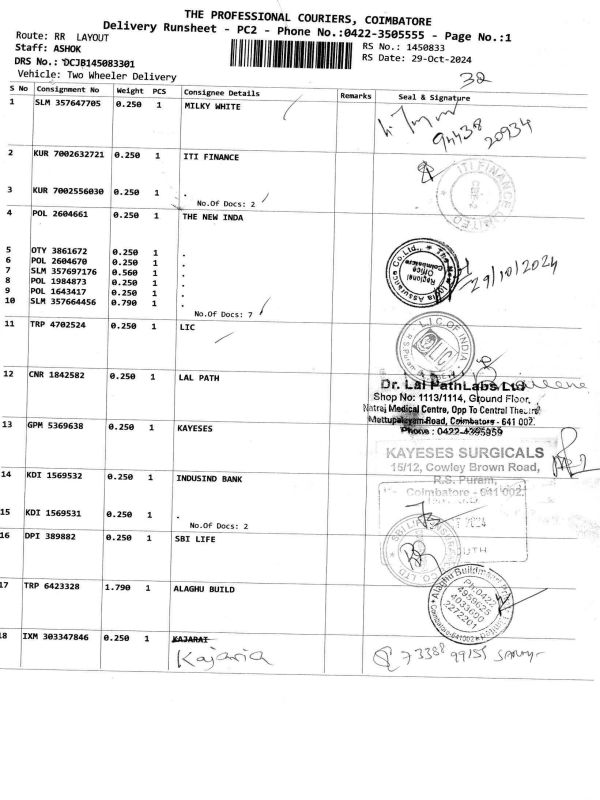 THE PROFESSIONAL COURIERS, COIMBATORE
Delivery Runsheet - PC2 - Phone No.:0422-3505555 - Page No.:1
Route: RR LAYOUT
Staff: ASHOK
RS No.: 1450833
DRS No.: DCJB145083301
RS Date: 29-Oct-2024
Vehicle: Two Wheeler Delivery
32
S No Consignment No Weight PCS Consignee Details Remarks Seal & Signature
1 SLM 357647705 0.250 1 MILKY WHITE
94438 20934
2 KUR 7002632721 0.250 1 ITI FINANCE
ITI FINANCE LIMITED
3 KUR 7002556030 0.250 1 .
No.Of Docs: 2
4 POL 2604661 0.250 1 THE NEW INDA
5 OTY 3861672 0.250 1 .
6 POL 2604670 0.250 1 .
7 SLM 357697176 0.560 1 .
8 POL 1984873 0.250 1 .
9 POL 1643417 0.250 1 .
10 SLM 357664456 0.790 1 .
No.Of Docs: 7
The New India Assurance Co. Ltd.,
Regional Office
Coimbatore
29/10/2024
11 TRP 4702524 0.250 1 LIC
L.I.C OF INDIA
LIC
12 CNR 1842582 0.250 1 LAL PATH
Dr. Lal PathLabs Ltd
Shop No: 1113/1114, Ground Floor,
Natraj Medical Centre, Opp To Central Theatre
Mettupalayam Road, Coimbatore - 641 002.
Phone : 0422-4395959
13 GPM 5369638 0.250 1 KAYESES
KAYESES SURGICALS
15/12, Cowley Brown Road,
R.S. Puram,
Coimbatore - 641 002.
14 KDI 1569532 0.250 1 INDUSIND BANK
15 KDI 1569531 0.250 1 .
No.Of Docs: 2
2024
16 DPI 389882 0.250 1 SBI LIFE
17 TRP 6423328 1.790 1 ALAGHU BUILD
PH:0422
4959625
4033900
2272201
Coimbatore-641002
18 IXM 303347846 0.250 1 KAJARAI
Kajaria
73388 99155